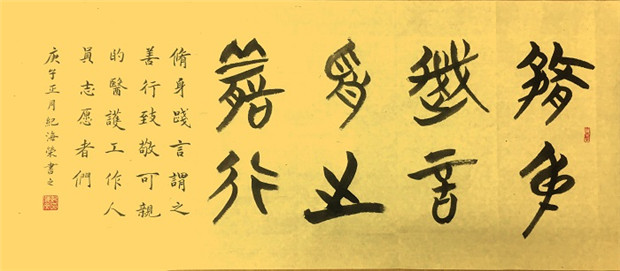 脩身
踐言
謂之
善行
脩身踐言謂之
善行致敬可親
的醫護工作人
員志愿者們
庚午正月紀海榮書之